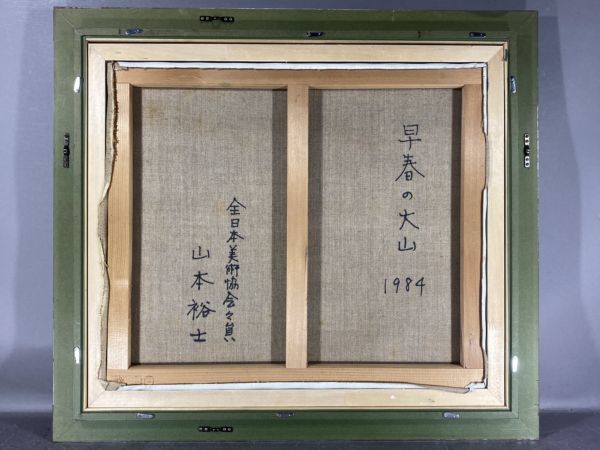 早春の大山
1984
全日本美術協会々員
山本裕士